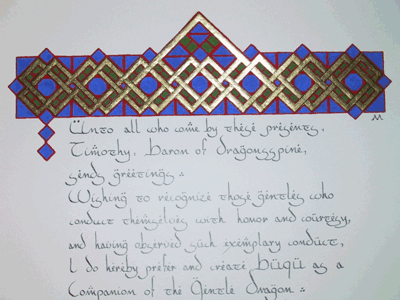 Unto all who come by these presents,
Timothy, Baron of Dragonsspine,
sends greetings
Wishing to recognize those gentles who
conduct themselves with honor and courtesy,
and having observed such exemplary conduct,
I do hereby prefer and create Bugu as a
Companion of the Gentle Dragon.